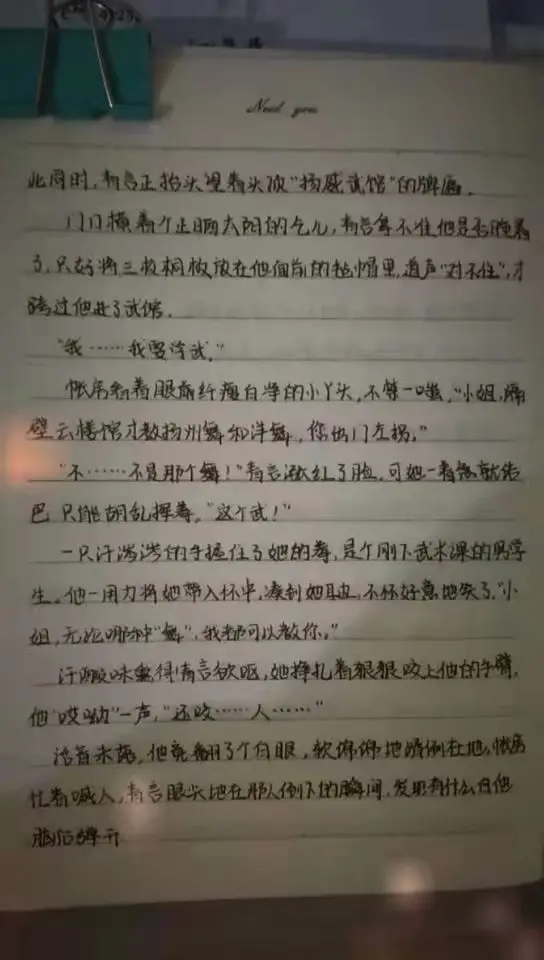 Need you
此同时，有言正抬头望着头顶“扬威武馆”的牌匾。
门口横着个正晒太阳的乞儿，有言等不准他是否睡着
了，只好将三枚铜板放在他面前的毡帽里，道声“对不住”，才
跨过他进了武馆。
“我……我要学武。”
帐房看着眼前纤瘦白净的小丫头，不禁一嗤，“小姐，隔
壁云楼馆才教扬州舞和洋舞，您出门左拐。”
“不……不是那个舞！”有言涨红了脸，可她一着急就结
巴 只能胡乱挥拳，“这个武！”
一只汗涔涔的手握住了她的拳，是个刚下武术课的男学
生。他一用力将她带入怀中，凑到她耳边，不怀好意地笑了，“小
姐，无论哪种“舞”，我都可以教你。”
汗酸味熏得有言欲呕，她挣扎着狠狠咬上他的手臂，
他“哎呦”一声，“还咬……人……”
话音未落，他竟翻了个白眼，软绵绵地瘫倒在地。帐房
忙着喊人，有言眼尖地在那人倒下的瞬间，发现有什么自他
脑后弹开